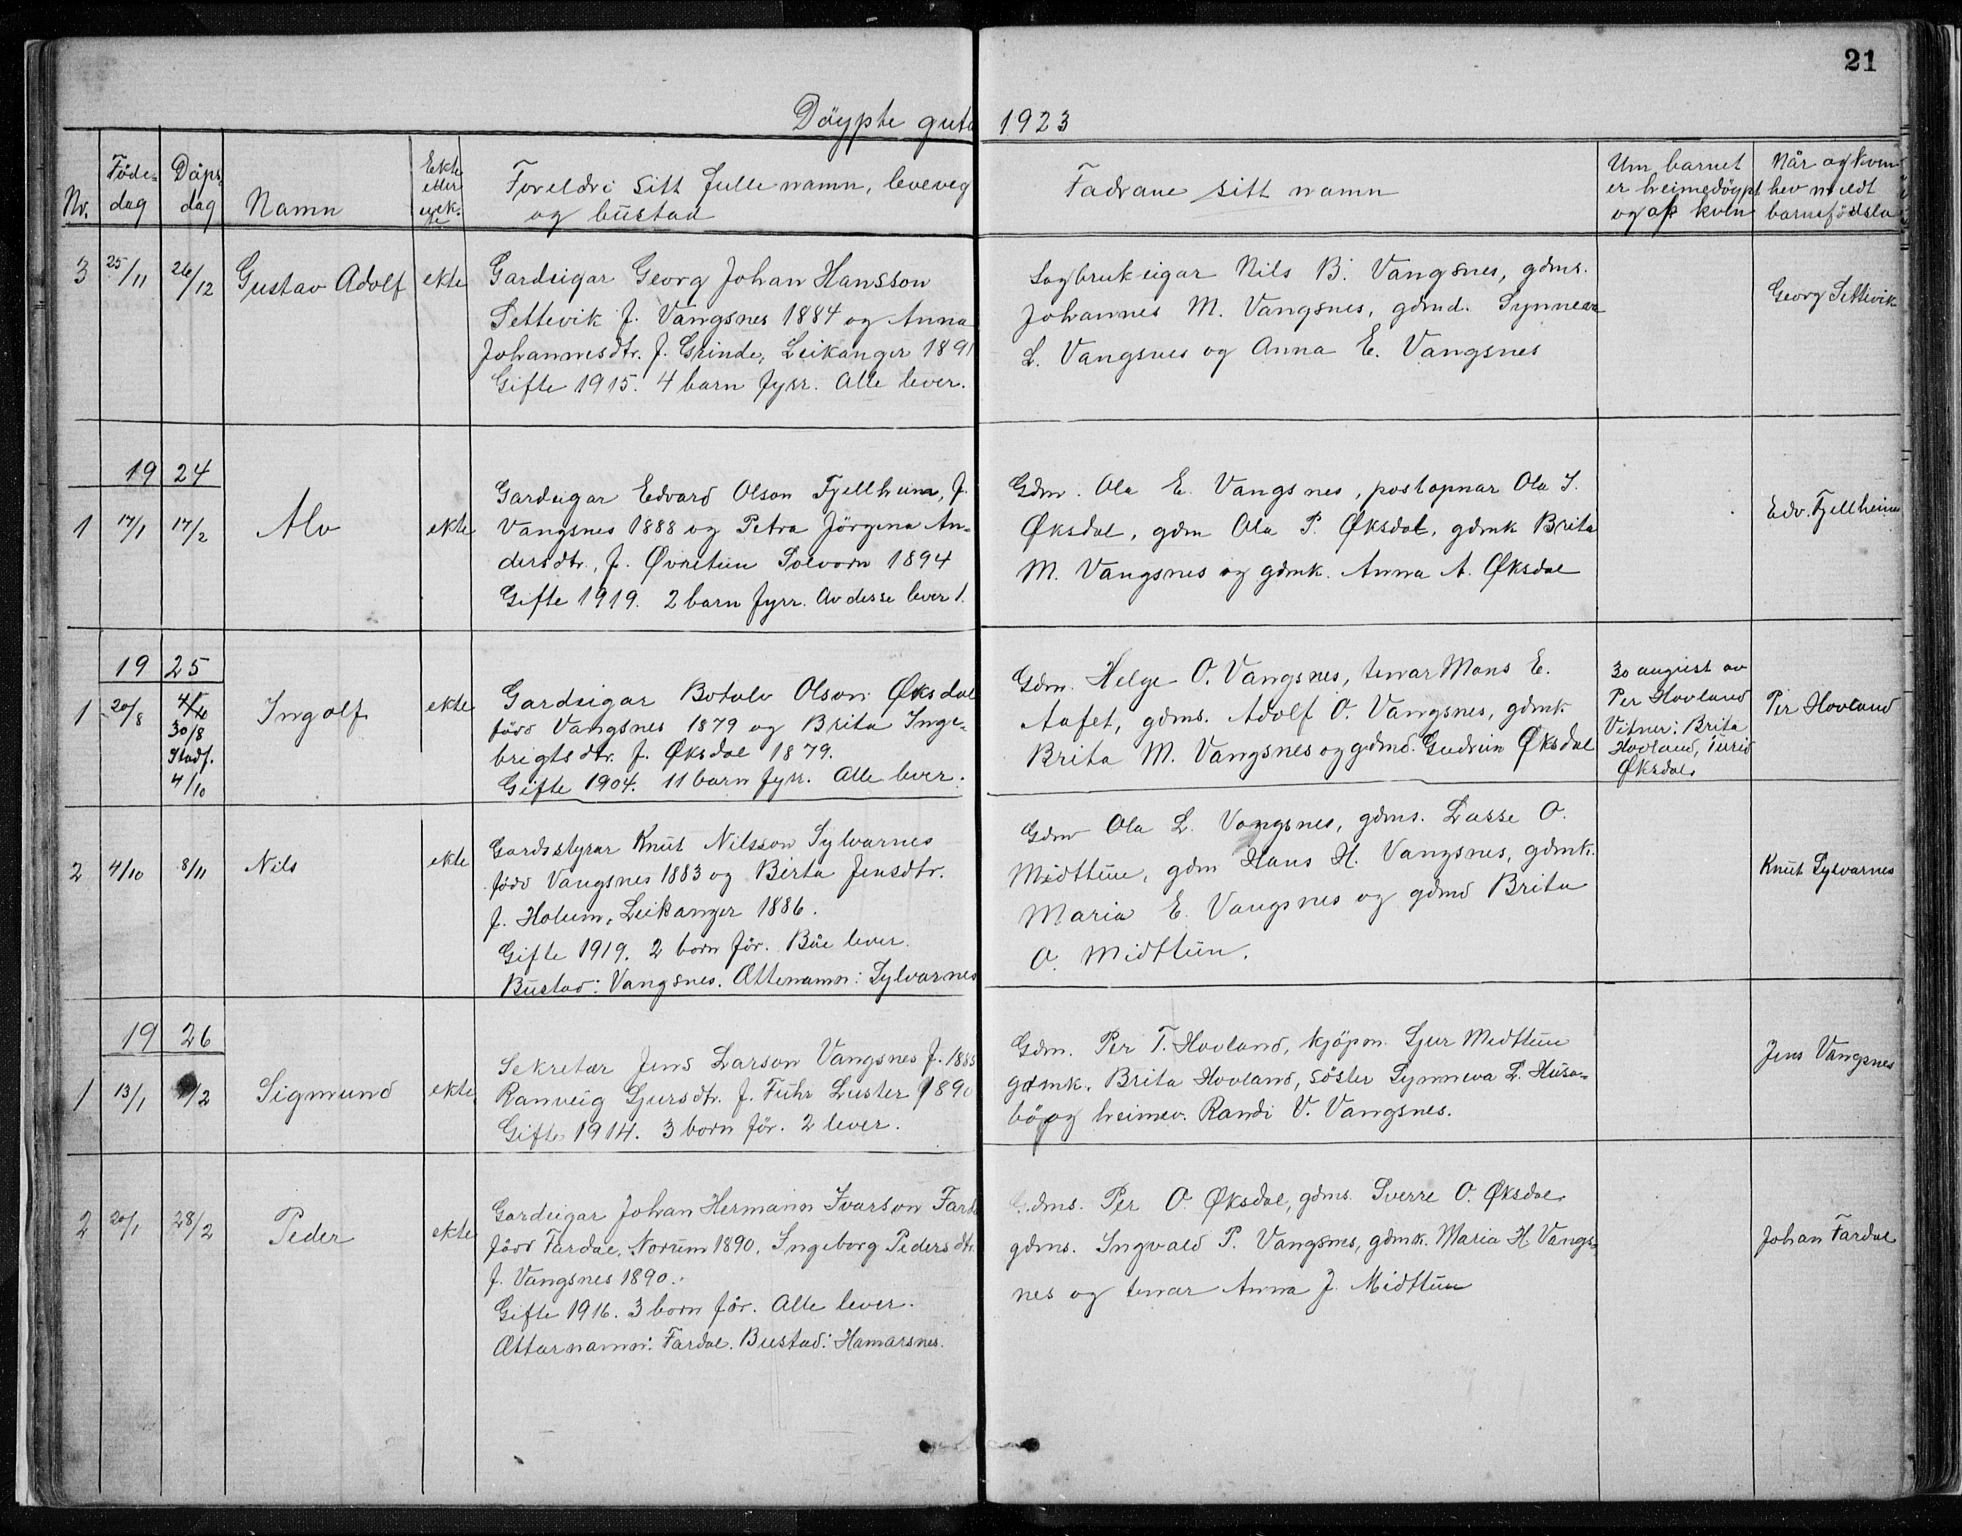 21
Döypte guta 1923
Nr. Föde- dag
Döps- dag
Namn
Ekte eller uek- te
Foreldri sitt fulle namn, leveveg
og bustad
Fadrane sitt namn
Um barnet
er heimedöypt
og af kven
Når og kven
hev meldt
barnefödsla
3 25/11 26/12 Gustav Adolf ekte
Gardeigar Georg Johan Hansson
Settevik f. Vangsnes 1884 og Anna
Johannesdtr. f. Grinde, Leikanger 1891
Gifte 1915. 4 barn fyrr. Alle lever.
Sagbrukeigar Nils B. Vangsnes, gdms.
Johannes M. Vangsnes, gdmd. Synneva
L. Vangsnes og Anna E. Vangsnes
Georg Settevik
19 24
1 17/1 17/2 Alv ekte
Gardeigar Edvard Olson Fjellheim, f.
Vangsnes 1888 og Petra Jörgina An-
dersdtr., f. Øvretun Solvorn 1894
Gifte 1919. 2 barn fyrr. Av desse lever 1.
Gdm. Ola E. Vangsnes, postopnar Ola S.
Øksdal, gdm Ola P. Øksdal, gdmk Brita
M. Vangsnes og gdmk. Anna A. Øksdal
Edv. Fjellheim
19 25
1 20/8 4/10
30/8
Stadf.
4/10
Ingolf ekte
Gardeigar Botolv Olson Øksdal
född Vangsnes 1879 og Brita Inge-
brigtsdtr. f. Øksdal 1879.
Gifte 1904. 11 barn fyrr. Alle lever.
Gdm. Helge O. Vangsnes, tenar Mons E.
Aafet, gdms. Adolf O. Vangsnes, gdmk.
Brita M. Vangsnes og gdmd. Gudrun Øksdal
30 august av
Per Hovland
Vitner: Brita
Hovland, Turid
Øksdal.
Per Hovland
2 4/10 8/11 Nils ekte
Gardsstyrar Knut Nilsson Sylvarnes
född Vangsnes 1883 og Birta Jensdtr.
f. Holum, Leikanger 1886.
Gifte 1919. 2 born för. Båe lever.
Bustad: Vangsnes. Ættenamn: Sylvarnes
Gdm Ola L. Vangsnes, gdms. Lasse O.
Midttun, gdm Hans H. Vangsnes, gdmk.
Maria E. Vangsnes og gdmd Brita
O. Midttun.
Knut Sylvarnes
19 26
1 13/1 /2 Sigmund ekte
Sekretær Jens Larson Vangsnes f. 1885
Ranveig Gjursdtr. f. Fuhr Luster 1890
Gifte 1914. 3 born för. 2 lever.
Gdm. Per T. Hovland, kjöpm. Sjur Midttun
gdmk. Brita Hovland, söster Synneva L. Husa-
bö og heimev. Randi V. Vangsnes.
Jens Vangsnes
2 20/1 28/2 Peder ekte
Gardeigar Johan Hermann Ivarson Fardal
född Fardal, Norum 1890, Ingeborg Pedersdtr.
f. Vangsnes 1890.
Gifte 1916. 3 born för. Alle lever.
Ættarnamn: Fardal. Bustad: Hamarsnes.
Gdms. Per O. Øksdal, gdms. Sverre O. Øksdal,
gdms. Ingvald P. Vangsnes, gdmk. Maria H. Vangs-
nes og tenar Anna J. Midttun
Johan Fardal